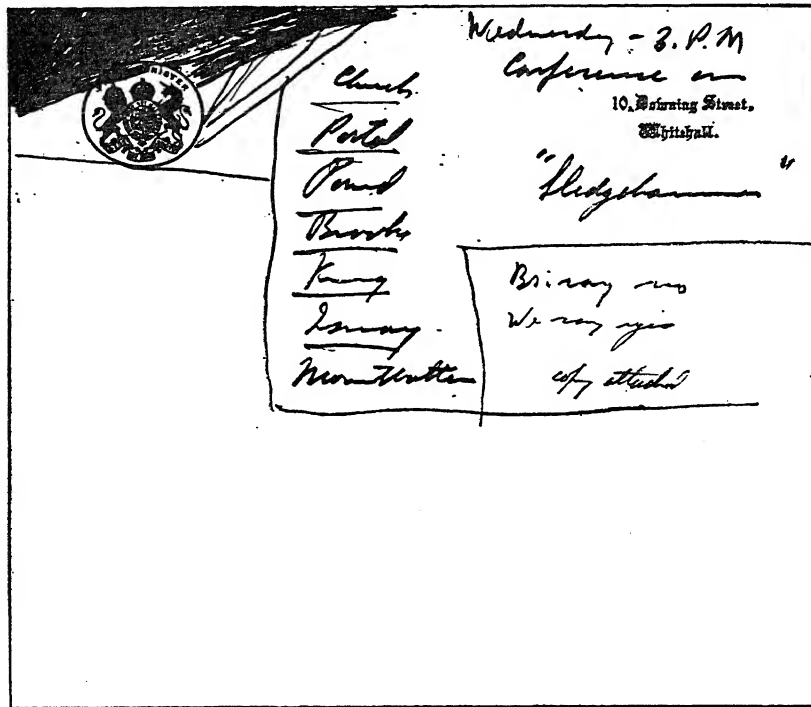 Wednesday - 3. P.M
Conference on
10, Downing Street,
Whitehall.
"Sledgehammer"
Church
Portal
Pound
Brooke
King
Ismay
Mountbatten
Bri. say no
We say yes
copy attached